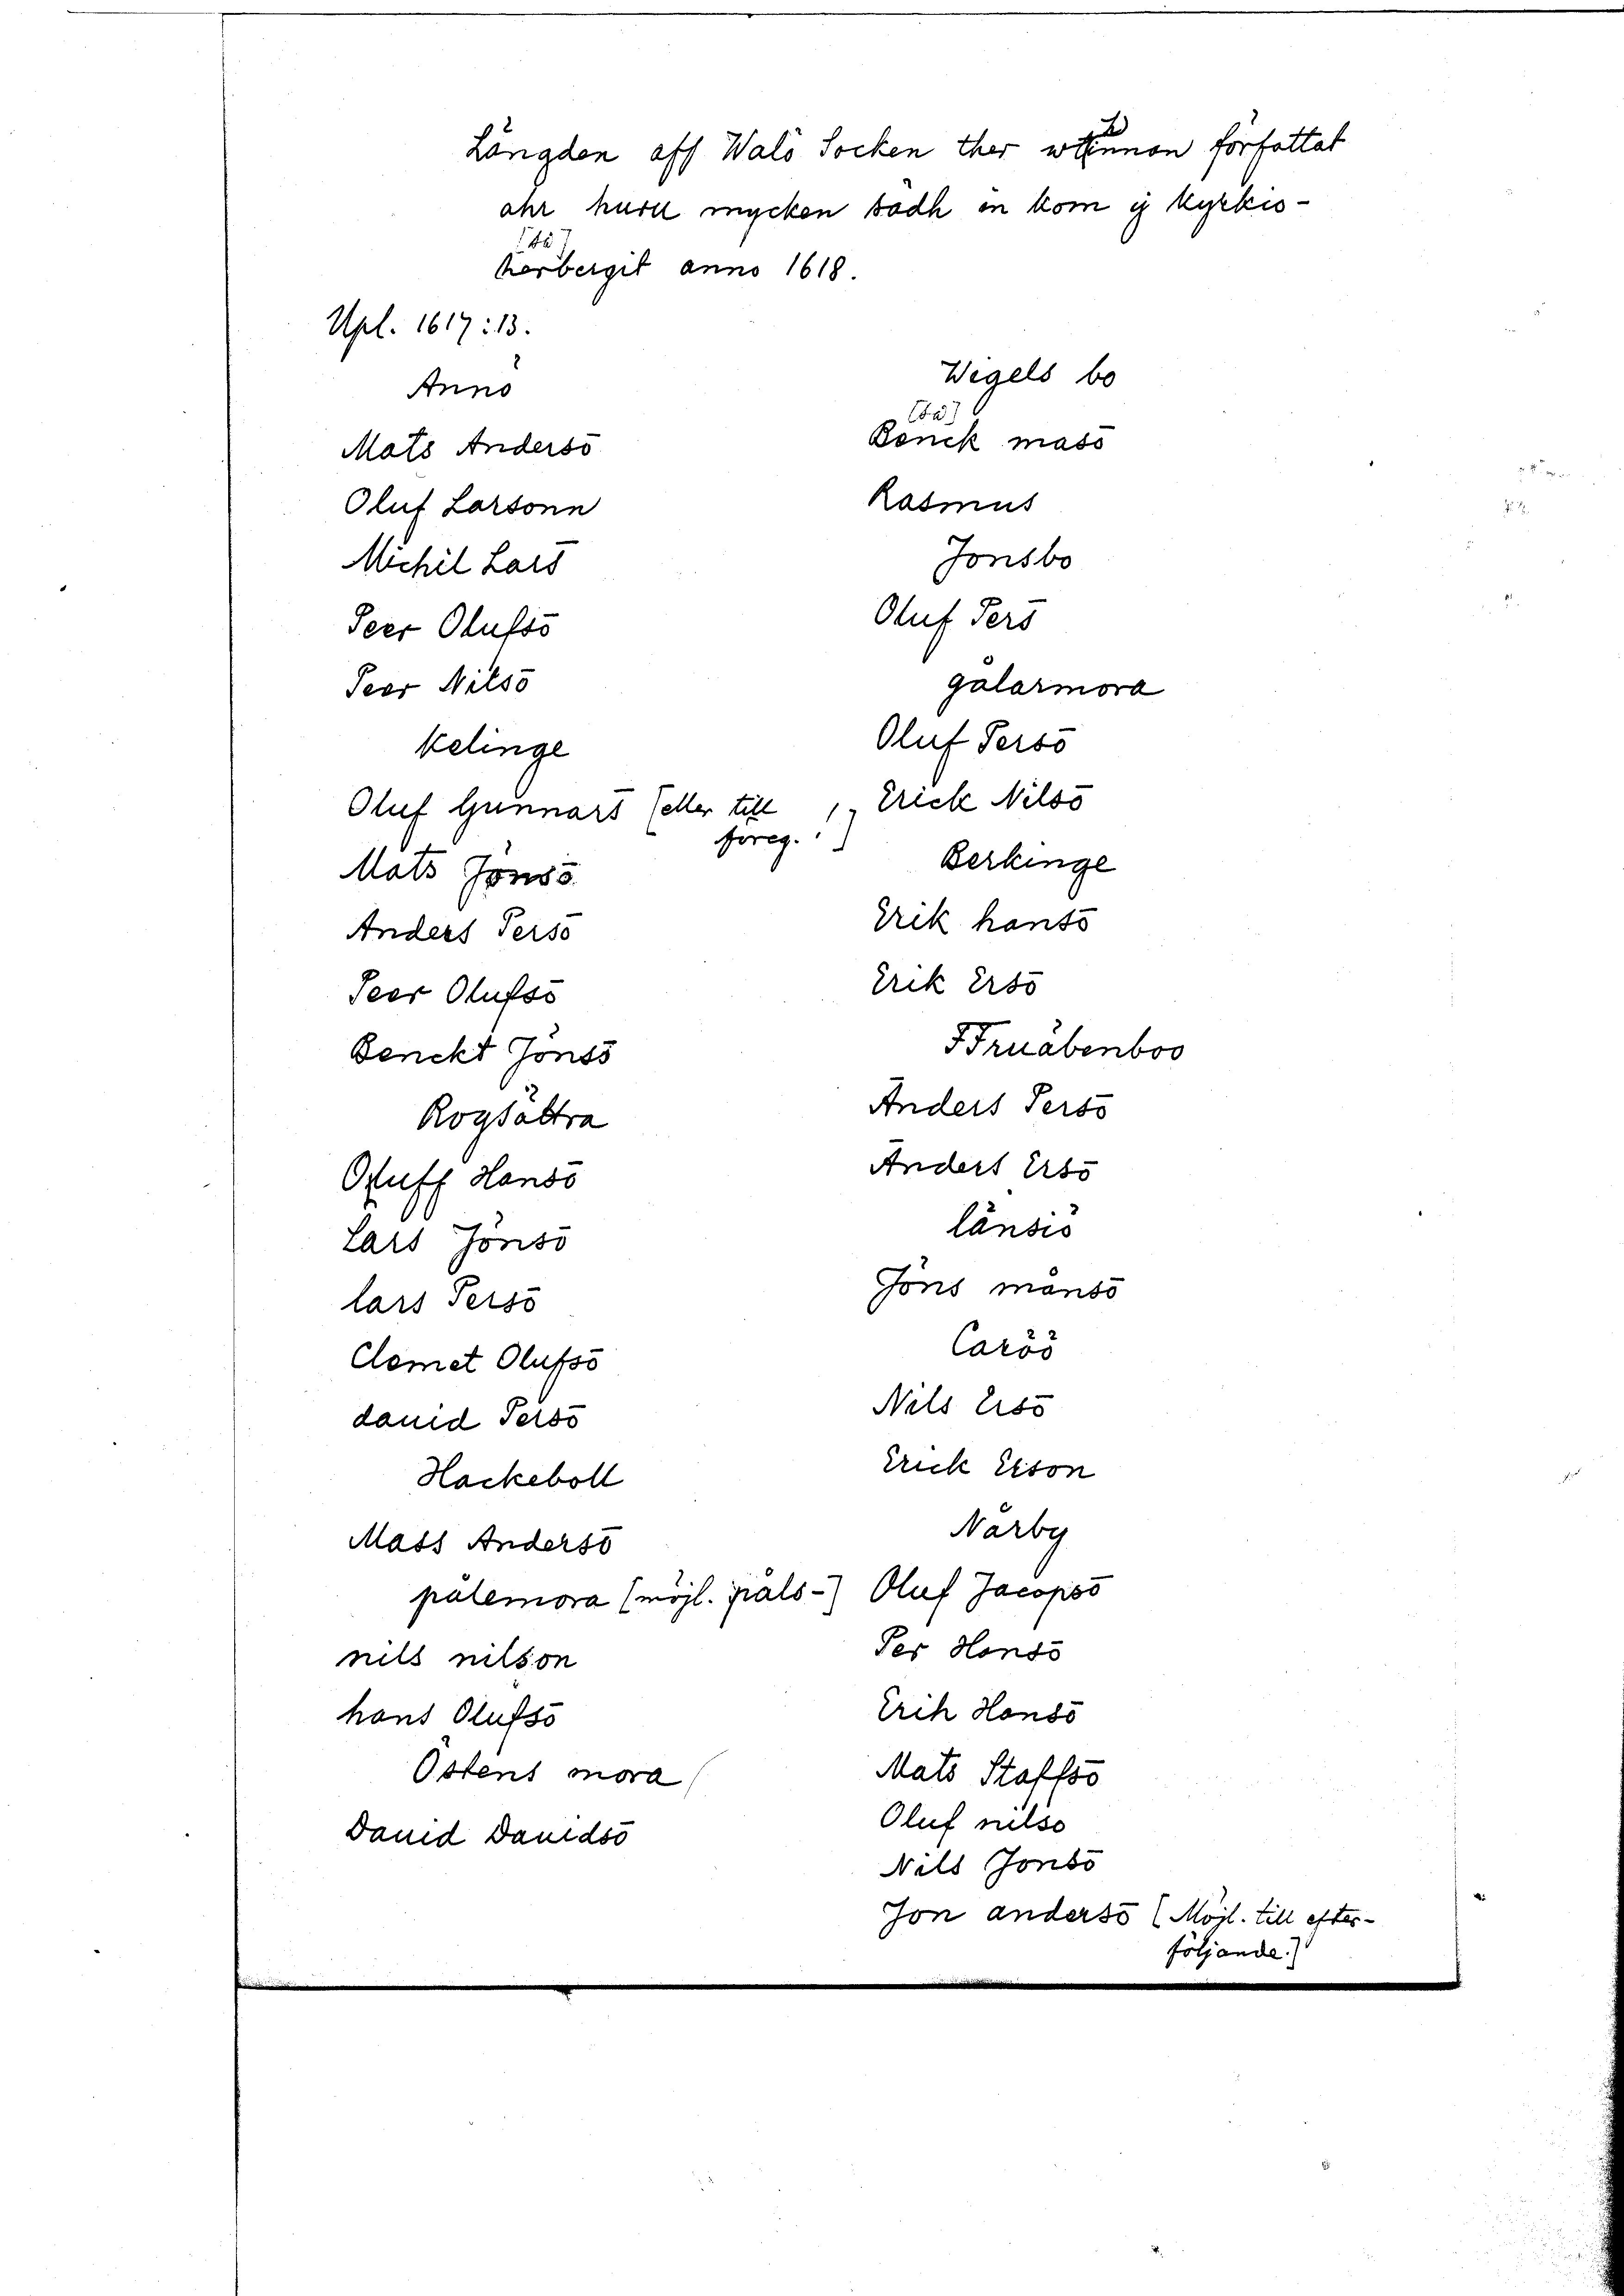 Längden aff Walö Socken ther innan författat
ähr huru mycken sädh in kom ij kyrkis-
herbergit anno 1618.
Upl. 1617:13.
Annö
Mats Andersō
Oluf Larsonn
Michil Lars̄
Peer Olufsō
Peer Nilsō
Kelinge
Oluf Gunnars̄ [eller till
föreg. !]
Mats Jönsō
Anders Persō
Peer Olufsō
Benckt Jönsō
Rogsättra
Oluff Hansō
Lars Jönsō
lars Persō
Clemet Olufsō
dauid Persō
Hackeboll
Mass Andersō
pälemora [möjl. päls-]
nils nilson
hans Olufsō
Östens mora
Dauid Dauidsō
Wigels bo
Benck masō
Rasmus
Jonsbo
Oluf Pers̄
gålarmora
Oluf Persō
Erick Nilsō
Berkinge
Erik hansō
Erik Ersō
FFruäbenboo
Anders Persō
Anders Ersō
länsiö
Jöns månsō
Caröö
Nils Ersō
Erick Erson
Närby
Oluf Jacopsō
Per Hansō
Erih Hansō
Mats Staffsō
Oluf nilso
Nils Jonsō
Jon andersō [Möjl. till efter-
följande.]